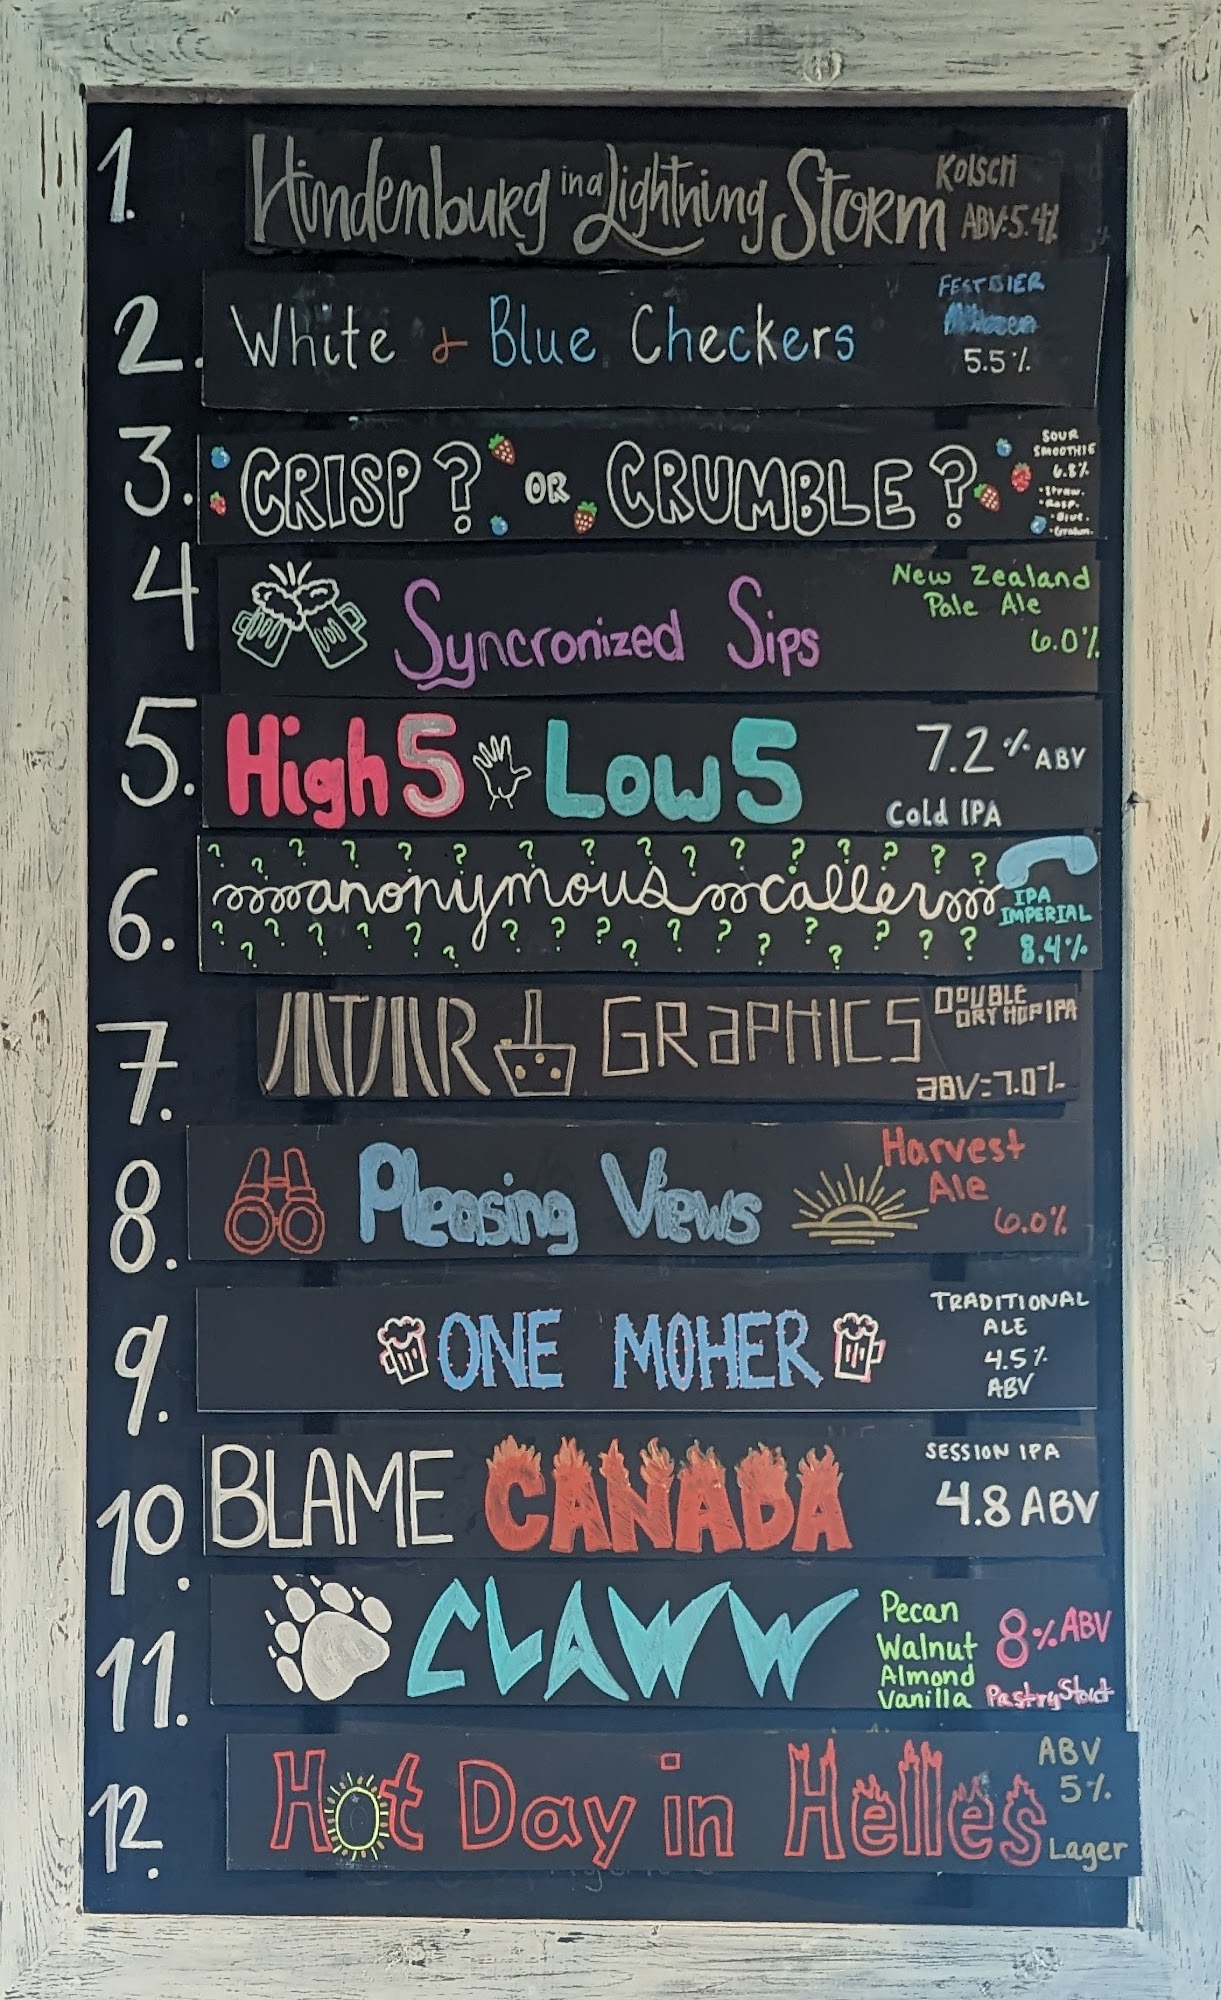 1. Hindenburg in a Lightning Storm Kolsch
ABV: 5.4%
2. White & Blue Checkers FESTBIER
5.5%
3. CRISP? OR CRUMBLE? SOUR
SMOOTHIE
6.8%
• Straw.
• Rasp.
• Blue.
4 Syncronized Sips New Zealand
Pale Ale
6.0%
5. High 5 Low 5 7.2% ABV
Cold IPA
6. anonymous caller IPA
IMPERIAL
8.4%
7. ATAR GRAPHICS DOUBLE
DRY HOP IPA
ABV=7.0%
8. Pleasing Views Harvest
Ale
6.0%
9. ONE MOHER TRADITIONAL
ALE
4.5%
ABV
10. BLAME CANADA SESSION IPA
4.8 ABV
11. CLAWW Pecan
Walnut
Almond
Vanilla
8% ABV
Pastry Stout
12. Hot Day in Helles ABV
5%
Lager